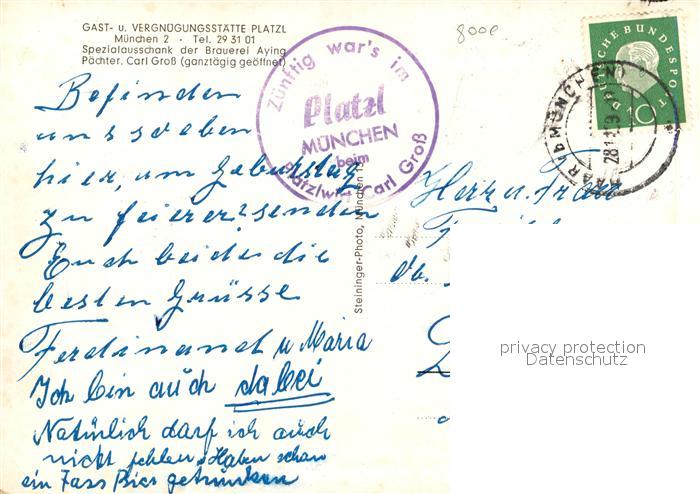 GAST- u. VERGNÜGUNGSSTÄTTE PLATZL
München 2 - Tel. 29 31 01
Spezialausschank der Brauerei Aying
Pächter. Carl Groß (ganztägig geöffnet)
Zünftig war's im
Platzl
MÜNCHEN
beim
Platzlwirt Carl Groß
8000
DEUTSCHE BUNDESPOST
10
HAAR (b MÜNCHEN)
Befinden
uns soeben
hier, um Geburtstag
zu feiern. senden
Euch beiden die
besten Grüsse
Ferdinand u Maria
Ich bin auch dabei
Natürlich darf ich auch
nicht fehlen, Haben schon
ein Fass Bier getrunken
Steininger-Photo, München 15
Herrn u. Frau
privacy protection
Datenschutz